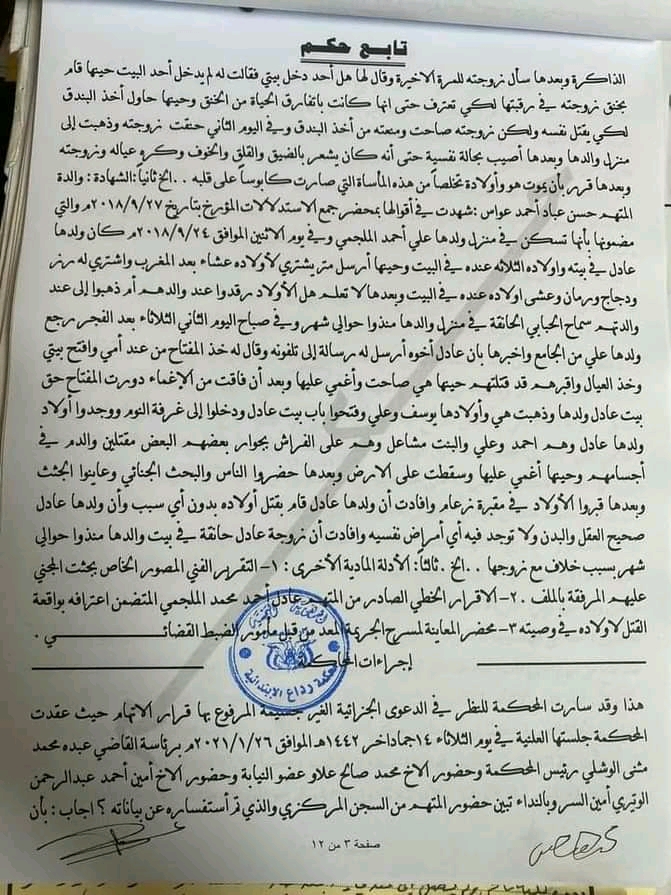 تابع حكم
الذاكرة وبعدها سأل زوجته للمرة الاخيرة وقال لها هل أحد دخل بيتي فقالت له لم يدخل أحد البيت حينها قام
بخنق زوجته في رقبتها لكي تعترف حتى انها كانت باتفارق الحياة من الخنق وحينها حاول أخذ البندق
لكي يقتل نفسه ولكن زوجته صاحت ومنعته من أخذ البندق وفي اليوم الثاني حنقت زوجته وذهبت إلى
منزل والدها وبعدها أصيب بحالة نفسية حتى أنه كان يشعر بالضيق والقلق والخوف وكره عياله وزوجته
وبعدها قرر بأن يموت هو وأولادة تخلصاً من هذه المأساة التي صارت كابوساً على قلبه ..الخ ثانياً: الشهادة : والدة
المتهم حسن عباد أحمد عواس : شهدت في أقوالها بمحضر جمع الاستدلالات المؤرخ بتاريخ ٢٠١٨/٩/٢٧م والتي
مضمونها بأنها تسكن في منزل ولدها علي أحمد الملجمي وفي يوم الاثنين الموافق ٢٠١٨/٩/٢٤م كان ولدها
عادل في بيته واولاده الثلاثه عنده في البيت وحينها أرسل متر يشتري لأولاده عشاء بعد المغرب واشتري له رز
ودجاج ورمان وعشى اولاده عنده في البيت وبعدها لا تعلم هل الأولاد رقدوا عند والدهم أم ذهبوا إلى عند
والدتهم سماح الحبابي الحانقة في منزل والدها منذوا حوالي شهر وفي صباح اليوم الثاني الثلاثاء بعد الفجر رجع
ولدها علي من الجامع واخبرها بان عادل أخوه أرسل له رسالة إلى تلفونه وقال له خذ المفتاح من عند أمي وافتح بيتي
وخذ العيال واقبرهم قد قتلتهم حينها هي صاحت وأغمي عليها وبعد أن فاقت من الإغماء دورت المفتاح حق
بيت عادل ولدها وذهبت هي وأولادها يوسف وعلي وفتحوا باب بيت عادل ودخلوا إلى غرفة النوم ووجدوا أولاد
ولدها عادل وهم احمد وعلي والبنت مشاعل وهم على الفراش بجوار بعضهم البعض مقتلين والدم في
أجسامهم وحينها أغمي عليها وسقطت على الارض وبعدها حضروا الناس والبحث الجنائي وعاينوا الجثث
وبعدها قبروا الأولاد في مقبرة زعام وافادت أن ولدها عادل قام بقتل أولاده بدون أي سبب وأن ولدها عادل
صحيح العقل والبدن ولا توجد فيه أي أمراض نفسيه وافادت أن زوجة عادل حانقة في بيت والدها منذوا حوالي
شهر بسبب خلاف مع زوجها ..الخ ثالثاً: الأدلة المادية الأخرى : ١- التقرير الفني المصور الخاص بجثت المجني
عليهم المرفقة بالملف .٢- الاقرار الخطي الصادر من المتهم عادل أحمد محمد الملجمي المتضمن اعترافه بواقعة
القتل لاولاده في وصيته ٣- محضر المعاينة لمسرح الجريمة المعد من قبل مأمور الضبط القضائي .
إجراءات المحاكمة
هذا وقد سارت المحكمة للنظر في الدعوى الجزائية الغير جسيمة المرفوع بها قرار الاتهام حيث عقدت
المحكمة جلستها العلنية في يوم الثلاثاء ١٤جماداخر ١٤٤٢هـ الموافق ٢٠٢١/١/٢٦م برئاسة القاضي عبده محمد
مثنى الوشلي رئيس المحكمة وحضور الاخ محمد صالح علاو عضو النيابة وحضور الاخ أمين أحمد عبدالرحمن
الوتيري أمين السر وبالنداء تبين حضور المتهم من السجن المركزي والذي تم أستفساره عن بياناته ؟ اجاب : بأن
صفحة ٣ من ١٢
محكمة رداع الابتدائية